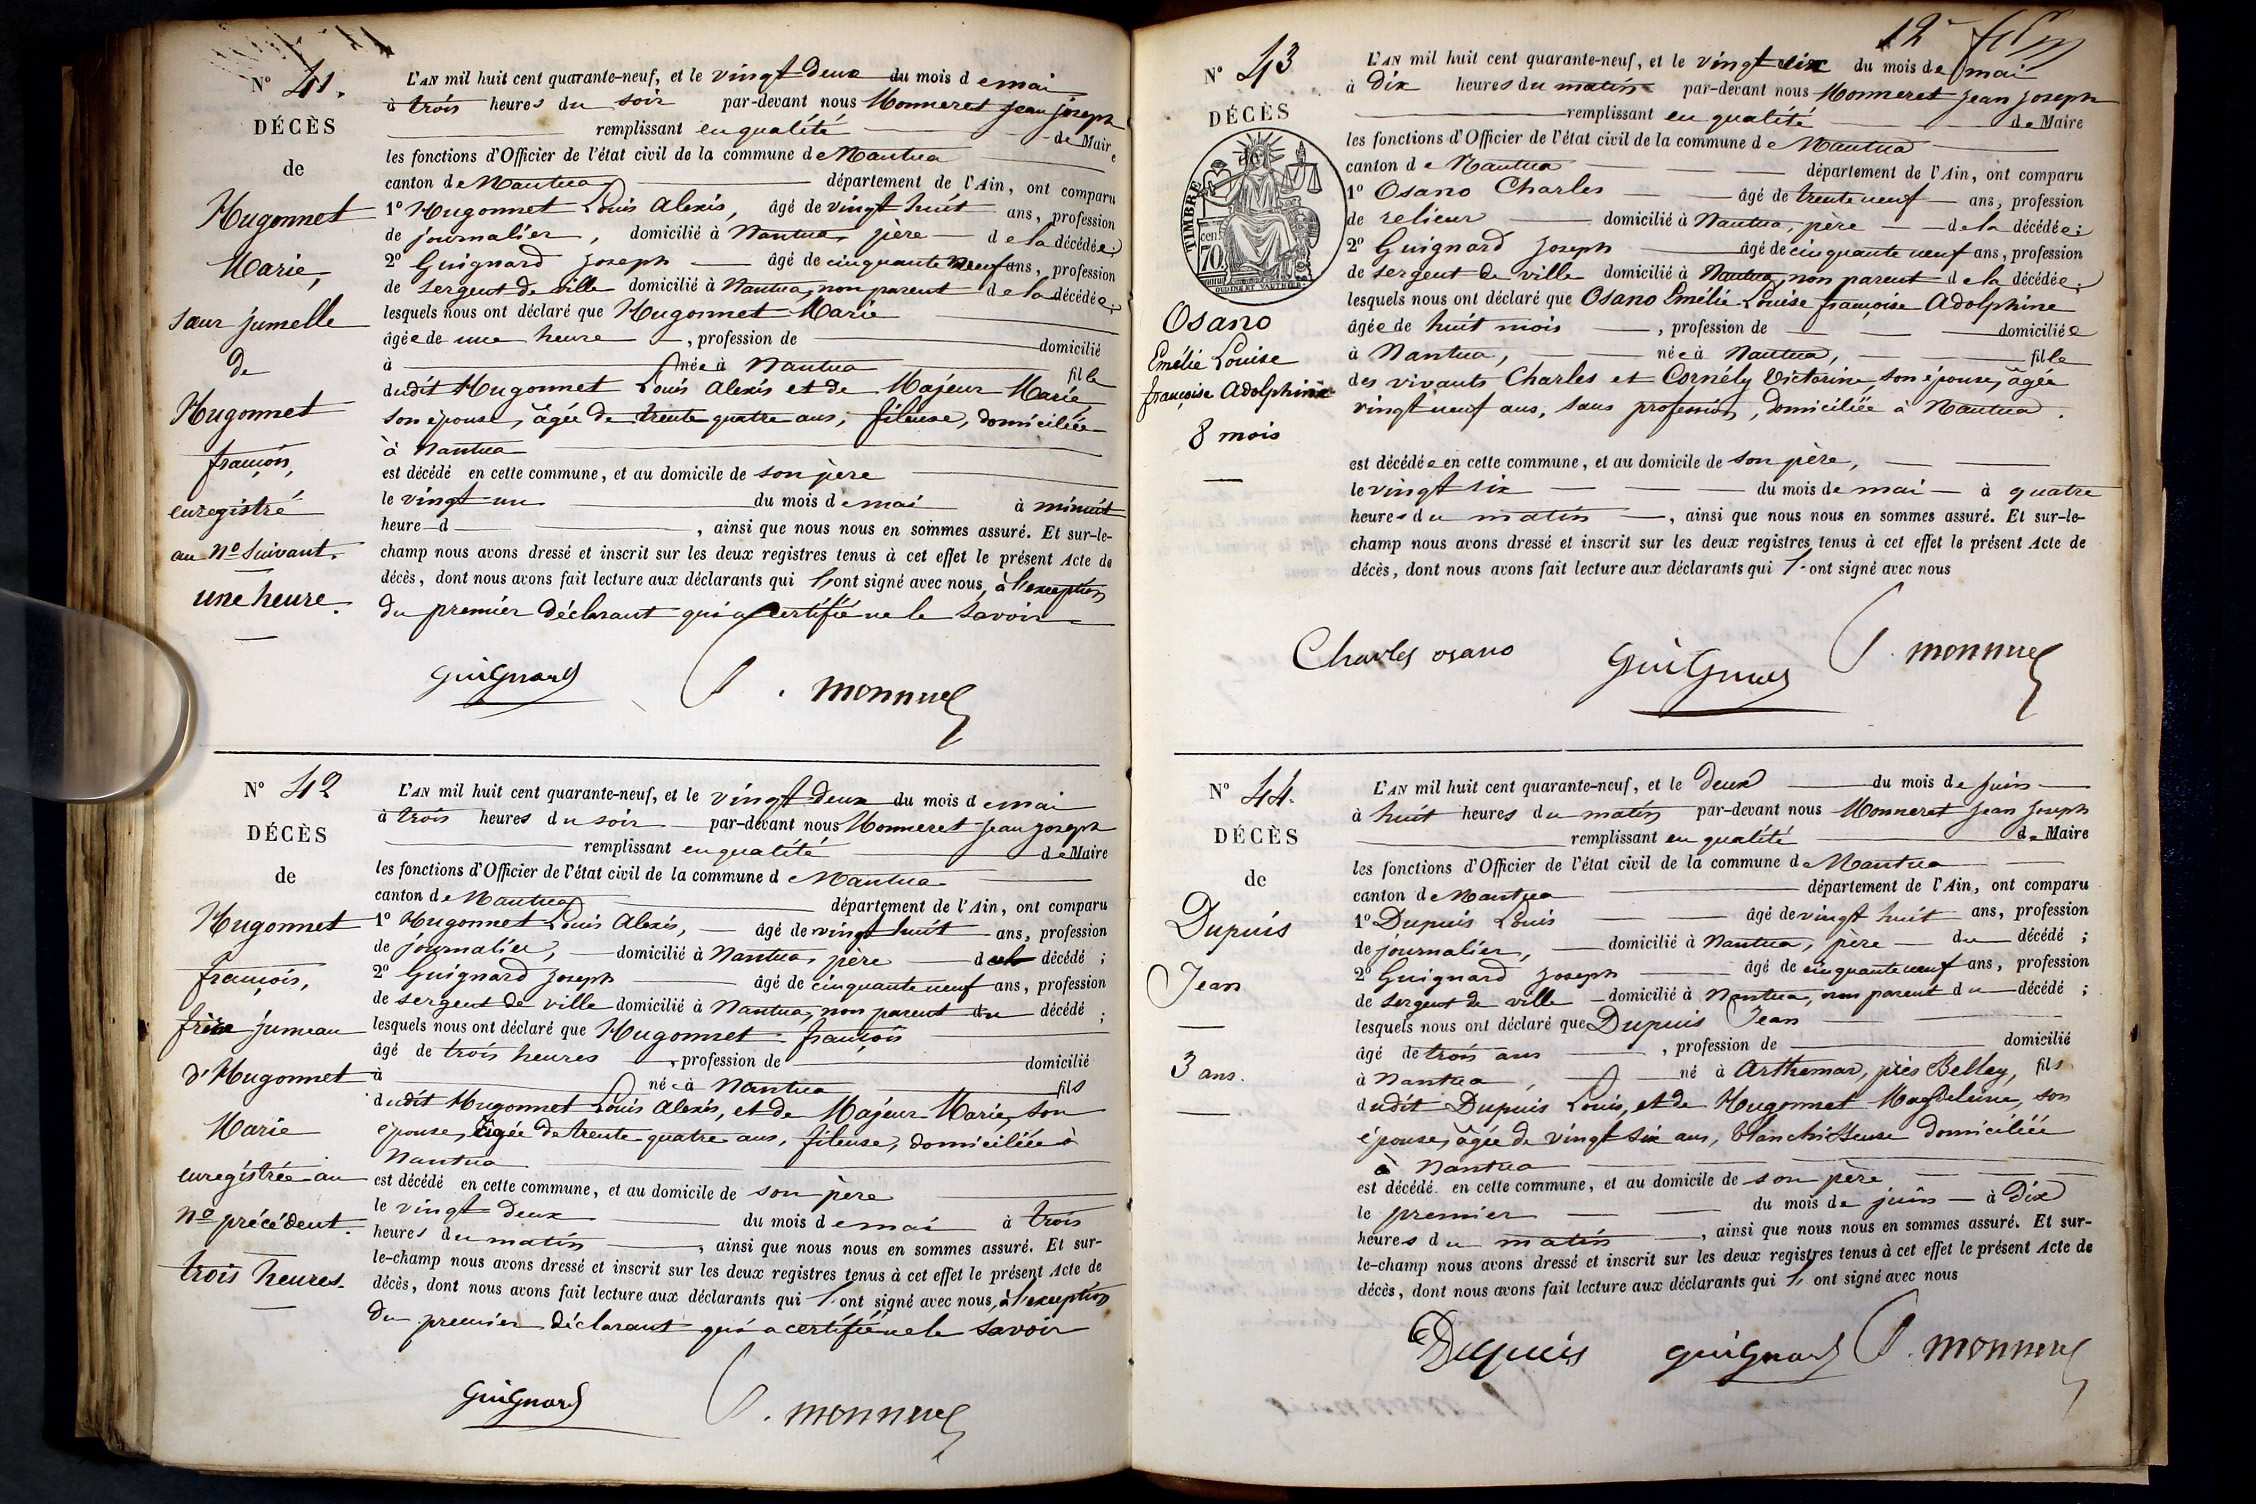 N° 41.
DÉCÈS
de
Hugonnet
Marie,
sœur jumelle
de
Hugonnet
françois,
enregistré
au N° suivant.
une heure.
L'AN mil huit cent quarante-neuf, et le vingt deux du mois de mai
à trois heures du soir par-devant nous Monneret jean joseph
remplissant en qualité de Maire
les fonctions d'Officier de l'état civil de la commune de Nantua
canton de Nantua département de l'Ain, ont comparu
1° Hugonnet Louis Alexis, âgé de vingt huit ans, profession
de journalier, domicilié à Nantua, père de la décédée;
2° Guignard joseph âgé de cinquante neuf ans, profession
de sergent de ville domicilié à Nantua, non parent de la décédée;
lesquels nous ont déclaré que Hugonnet Marie
âgée de une heure, profession de domicilié
à née à Nantua fille
dudit Hugonnet Louis Alexis et de Majeur Marie
son épouse, âgée de trente quatre ans, fileuse, domiciliée
à Nantua
est décédé en cette commune, et au domicile de son père
le vingt un du mois de mai à minuit
heure d , ainsi que nous nous en sommes assuré. Et sur-le-
champ nous avons dressé et inscrit sur les deux registres tenus à cet effet le présent Acte de
décès, dont nous avons fait lecture aux déclarants qui l'ont signé avec nous, à l'exception
du premier déclarant qui a certifié ne le savoir
Guignard J. monneret
N° 42
DÉCÈS
de
Hugonnet
françois,
frère jumeau
d'Hugonnet
Marie
enregistrée au
N° précédent.
trois heures.
L'AN mil huit cent quarante-neuf, et le vingt deux du mois de mai
à trois heures du soir par-devant nous Monneret jean joseph
remplissant en qualité de Maire
les fonctions d'Officier de l'état civil de la commune de Nantua
canton de Nantua département de l'Ain, ont comparu
1° Hugonnet Louis Alexis, âgé de vingt huit ans, profession
de journalier, domicilié à Nantua, père du décédé;
2° Guignard joseph âgé de cinquante neuf ans, profession
de sergent de ville domicilié à Nantua, non parent du décédé;
lesquels nous ont déclaré que Hugonnet françois
âgé de trois heures, profession de domicilié
à né à Nantua fils
dudit Hugonnet Louis Alexis, et de Majeur Marie, son
épouse, âgée de trente quatre ans, fileuse, domiciliée à
Nantua
est décédé en cette commune, et au domicile de son père
le vingt deux du mois de mai à trois
heures du matin, ainsi que nous nous en sommes assuré. Et sur-
le-champ nous avons dressé et inscrit sur les deux registres tenus à cet effet le présent Acte de
décès, dont nous avons fait lecture aux déclarants qui l'ont signé avec nous, à l'exception
du premier déclarant qui a certifié ne le savoir
Guignard J. monneret
12e
N° 43
DÉCÈS
TIMBRE
70 cen.
Osano
Emélie Louise
françoise Adolphine
8 mois
L'AN mil huit cent quarante-neuf, et le vingt six du mois de mai
à dix heures du matin par-devant nous Monneret jean joseph
remplissant en qualité de Maire
les fonctions d'Officier de l'état civil de la commune de Nantua
canton de Nantua département de l'Ain, ont comparu
1° Osano Charles âgé de trente neuf ans, profession
de relieur domicilié à Nantua, père de la décédée;
2° Guignard joseph âgé de cinquante neuf ans, profession
de sergent de ville domicilié à Nantua, non parent de la décédée;
lesquels nous ont déclaré que Osano Emélie Louise françoise Adolphine
âgée de huit mois, profession de domiciliée
à Nantua, née à Nantua, fille
des vivants Charles et Cornély Victorine, son épouse, âgée
vingt neuf ans, sans profession, domiciliée à Nantua.
est décédée en cette commune, et au domicile de son père,
le vingt six du mois de mai à quatre
heures du matin, ainsi que nous nous en sommes assuré. Et sur-le-
champ nous avons dressé et inscrit sur les deux registres tenus à cet effet le présent Acte de
décès, dont nous avons fait lecture aux déclarants qui l'ont signé avec nous
Charles osano Guignard J. monneret
N° 44.
DÉCÈS
de
Dupuis
Jean
3 ans.
L'AN mil huit cent quarante-neuf, et le deux du mois de juin
à huit heures du matin par-devant nous Monneret jean joseph
remplissant en qualité de Maire
les fonctions d'Officier de l'état civil de la commune de Nantua
canton de Nantua département de l'Ain, ont comparu
1° Dupuis Louis âgé de vingt huit ans, profession
de journalier, domicilié à Nantua, père du décédé;
2° Guignard joseph âgé de cinquante neuf ans, profession
de sergent de ville domicilié à Nantua, non parent du décédé;
lesquels nous ont déclaré que Dupuis Jean
âgé de trois ans, profession de domicilié
à Nantua, né à Arthemar, près Belley, fils
dudit Dupuis Louis, et de Hugonnet Magdeleine, son
épouse, âgée de vingt six ans, blanchisseuse domiciliée
à Nantua
est décédé en cette commune, et au domicile de son père
le premier du mois de juin à dix
heures du matin, ainsi que nous nous en sommes assuré. Et sur-
le-champ nous avons dressé et inscrit sur les deux registres tenus à cet effet le présent Acte de
décès, dont nous avons fait lecture aux déclarants qui l'ont signé avec nous
Dupuis Guignard J. monneret